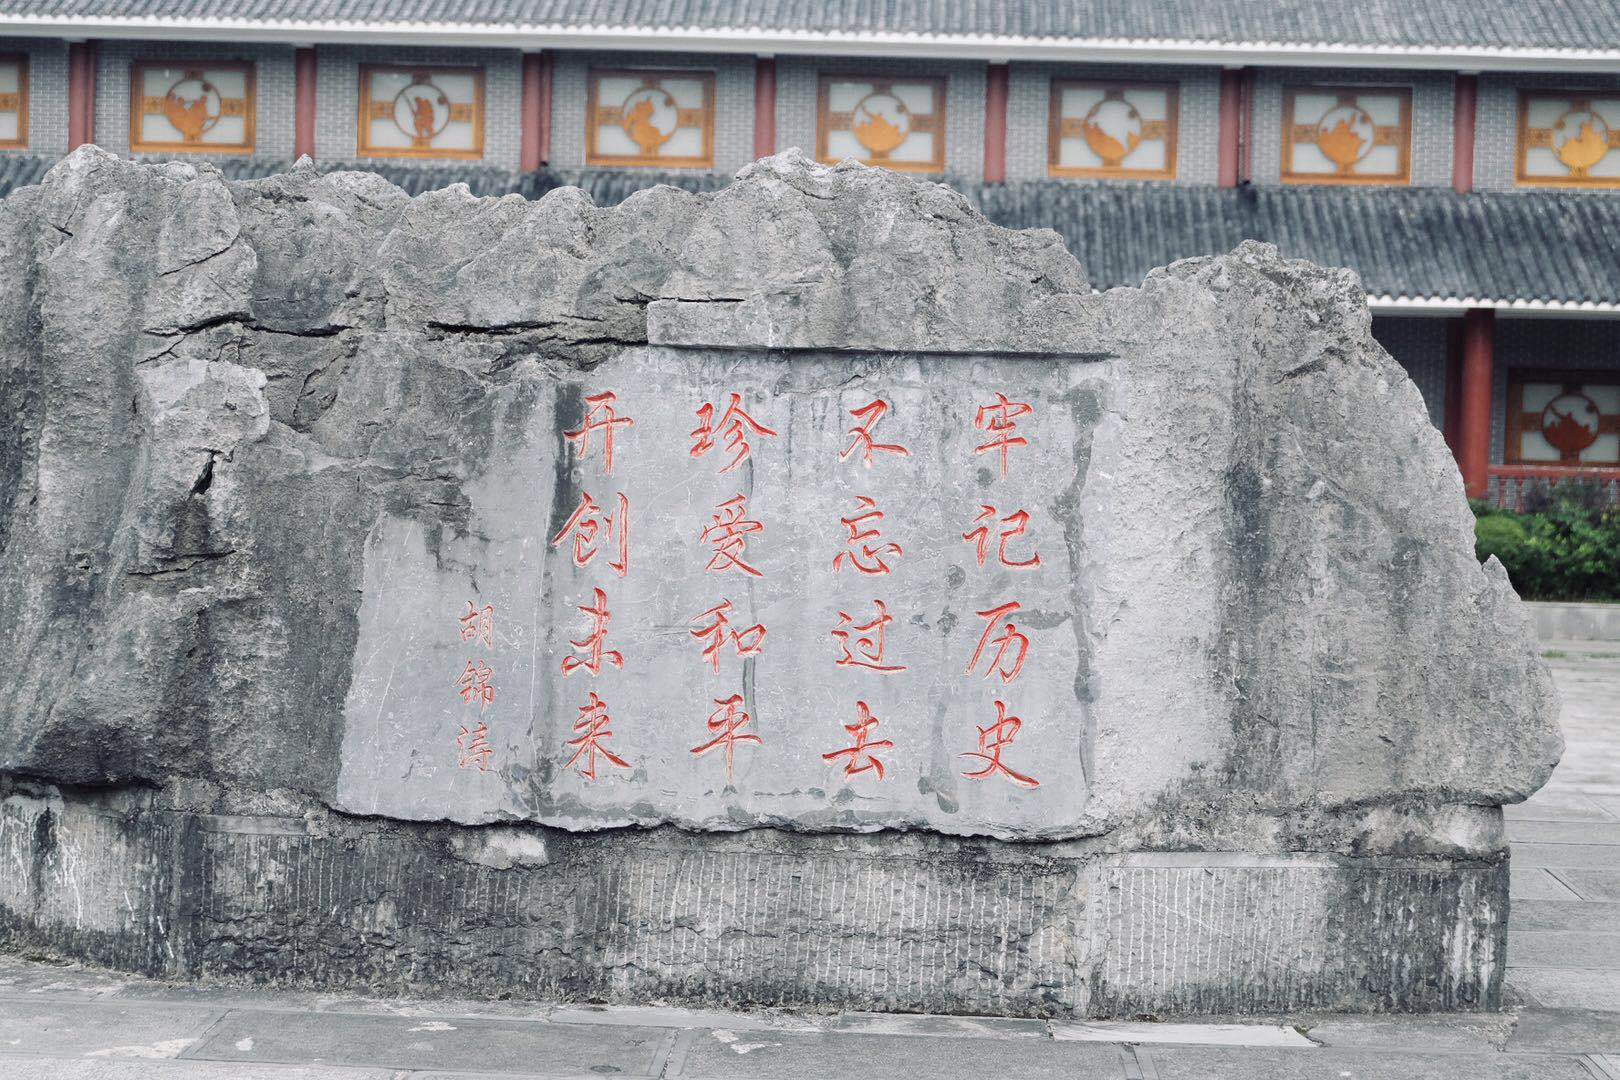 牢记历史
不忘过去
珍爱和平
开创未来
胡锦涛